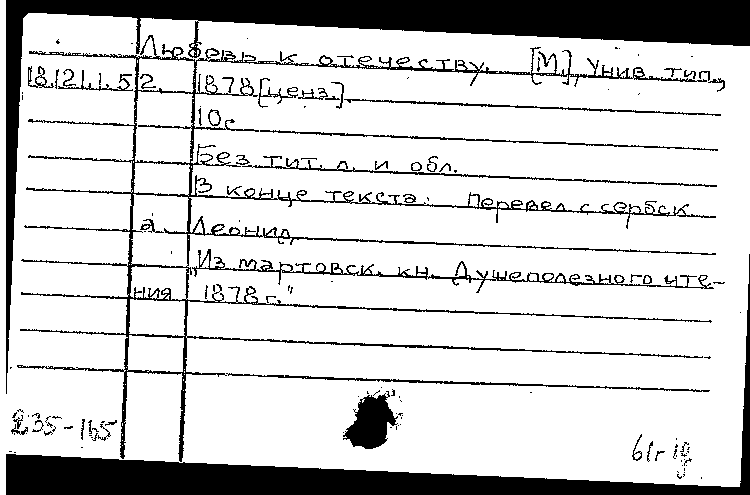 Любовь к отечеству. [М.], Унив. тип.,
18.121.1.52. 1878 [ценз.].
10с
Без тит. л. и обл.
В конце текста: Перевел с сербск.
а. Леонид.
"Из мартовск. кн. Душеполезного чте-
ния 1878 г."
235-165
61г